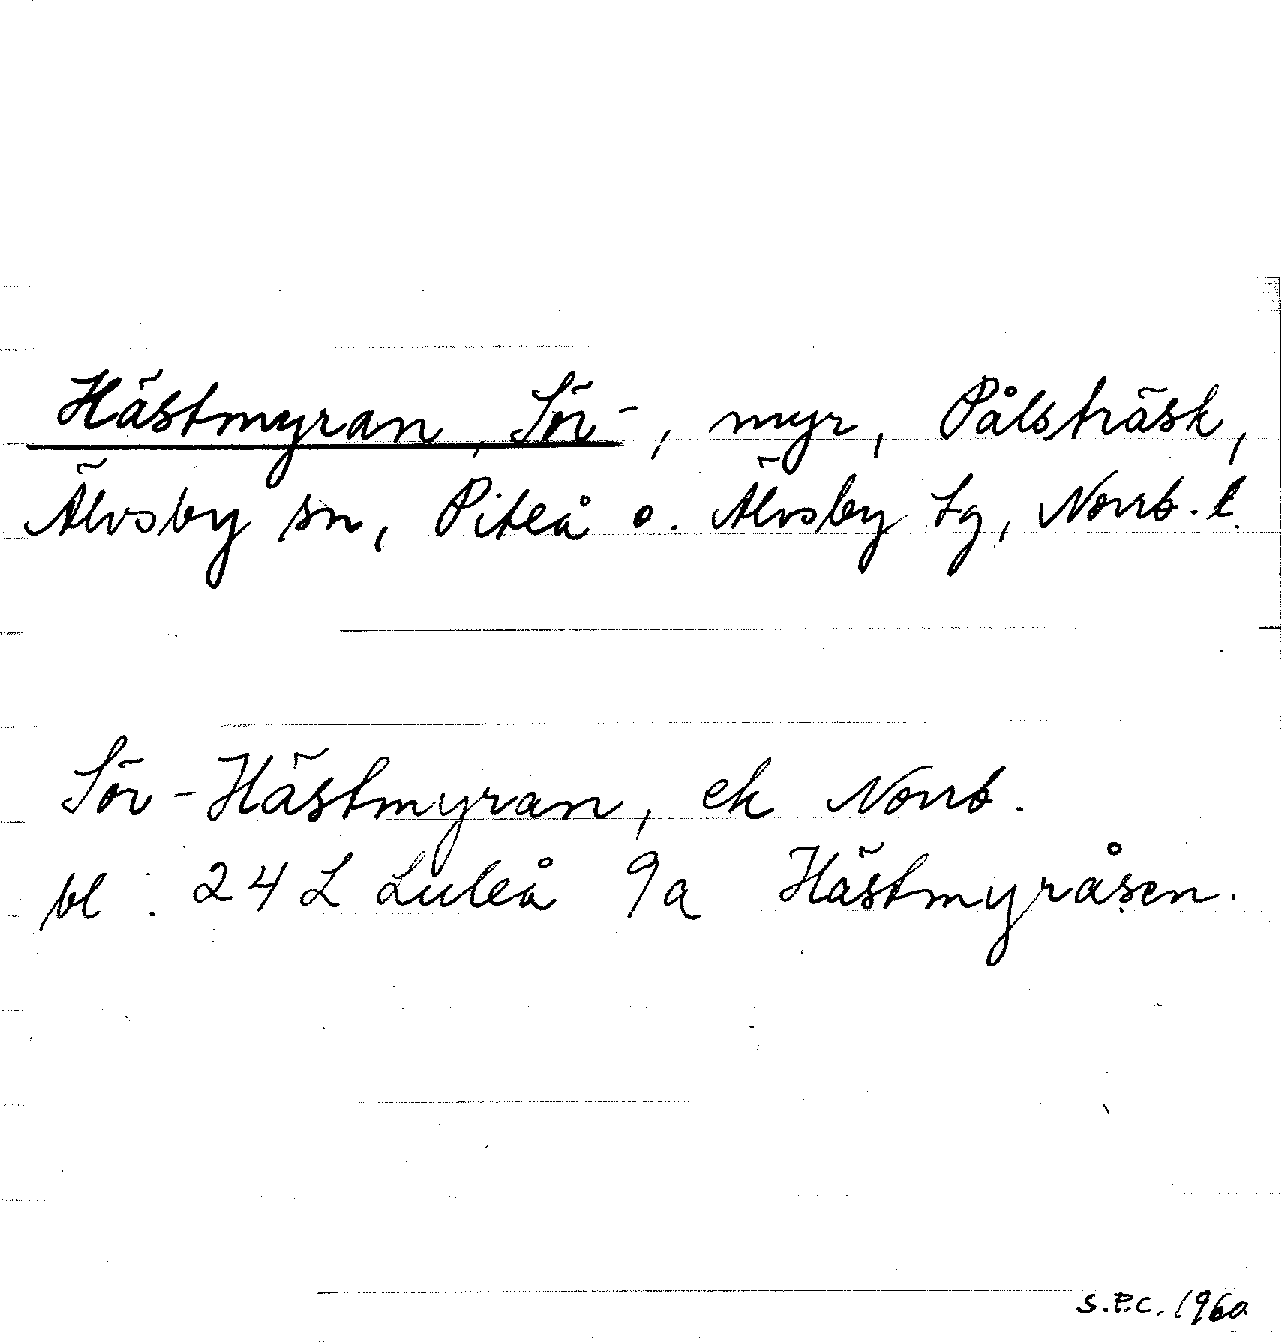 Hästmyran, Sör-, myr, Pålsträsk,
Älvsby sn, Piteå o. Älvsby tg, Norrb. l.
Sör-Hästmyran, ek Norrb.
bl. 24 L Luleå 9a Hästmyråsen.
S.P.C. 1960